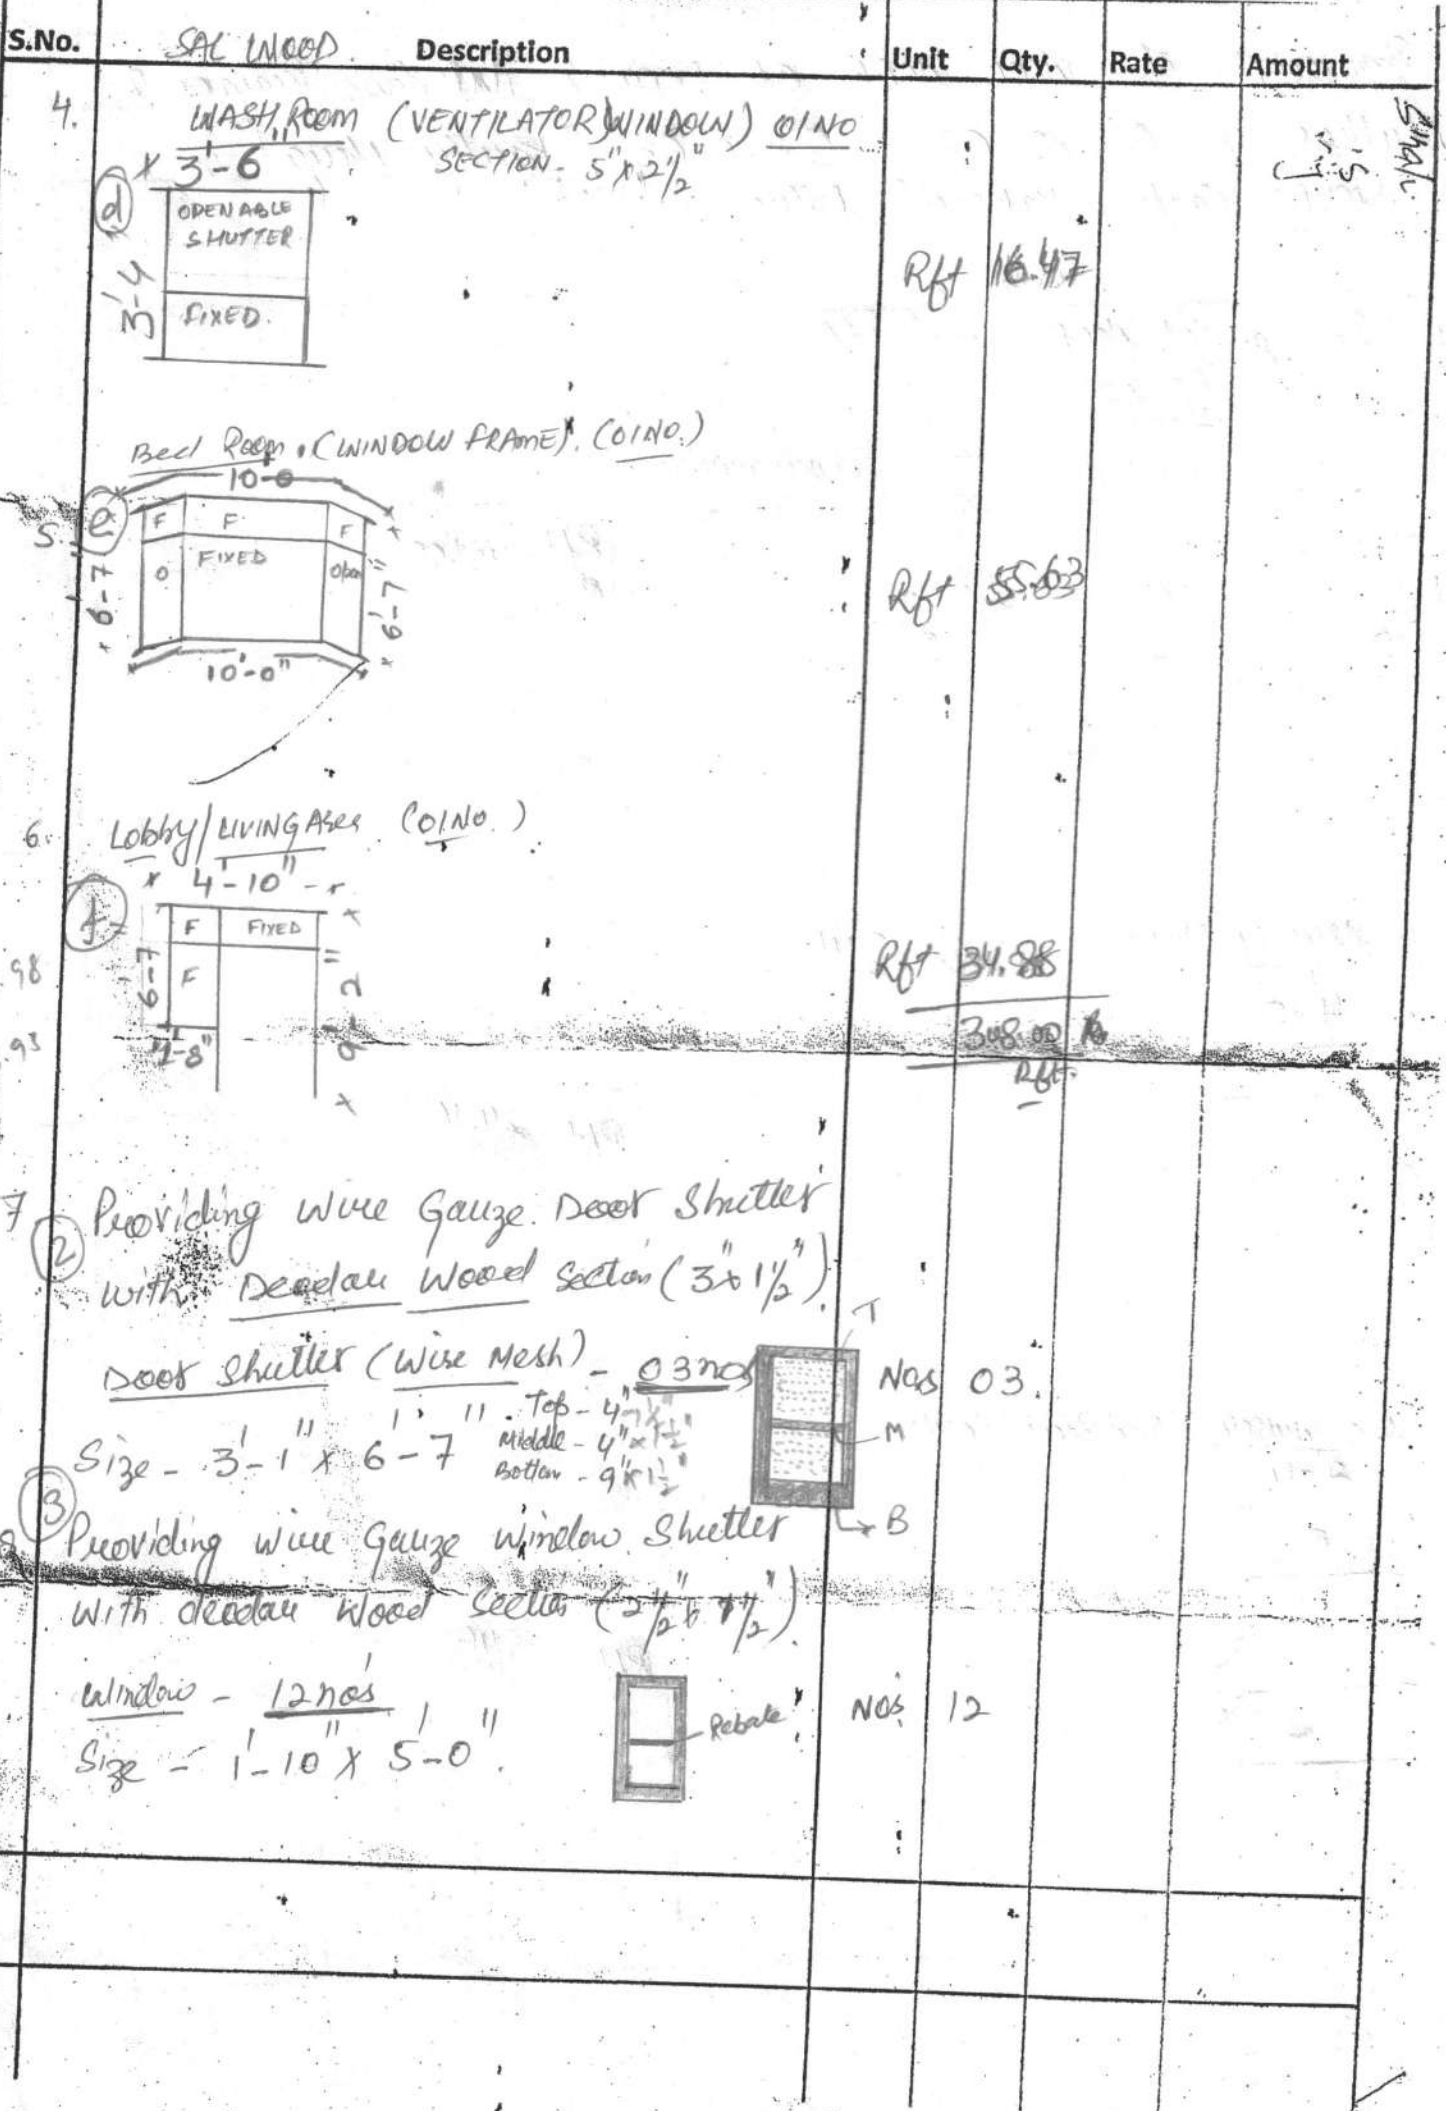 S.No. SAL WOOD. Description Unit Qty. Rate Amount
4. WASH ROOM (VENTILATOR) WINDOW) 01 NO
SECTION - 5" x 2½"
x 3'-6"
d
OPENABLE
SHUTTER
3'-4
FIXED.
Rft 16.47
Bed Room. (WINDOW FRAME). (01 NO.)
10-0
5. e
F F F
O FIXED Open
6-7"
6'-7"
10'-0"
Rft 55.63
6. Lobby/LIVING Area (01 NO.)
4'-10"
f
F FIXED
F
6-7
9'-2"
1'-8"
98
93
Rft 34.88
308.00
Rft.
7 Providing wire Gauze Door Shutter
2
with Deodar Wood Section (3" x 1½").
Door Shutter (Wire Mesh) - 03 nos
Nos 03.
Top - 4"
Size - 3'-1" x 6'-7" Middle - 4" x 1½"
Bottom - 9" x 1½"
T
M
B
3
8. Providing wire Gauze window Shutter
with deodar Wood Section (2½" x 1½").
Window - 12 nos
Nos 12
Rebate
Size - 1'-10" x 5'-0".